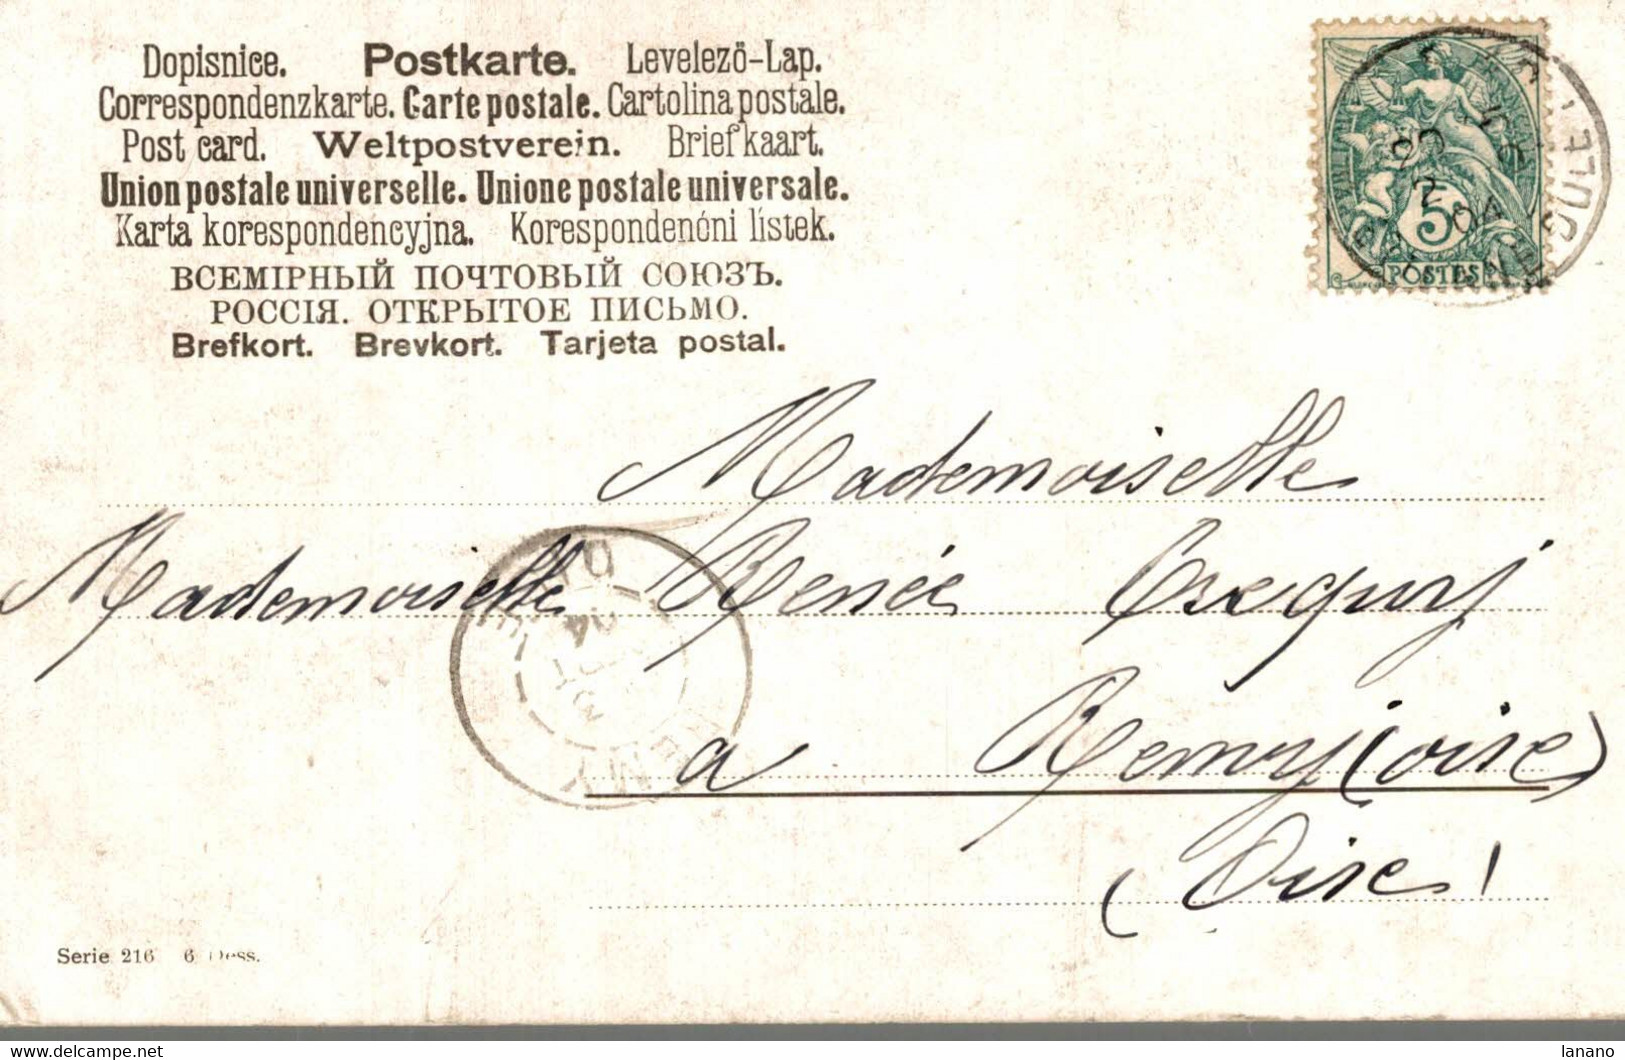 Dopisnice. Postkarte. Levelezö-Lap.
Correspondenzkarte. Carte postale. Cartolina postale.
Post card. Weltpostverein. Briefkaart.
Union postale universelle. Unione postale universale.
Karta korespondencyjna. Korespondenćni lístek.
ВСЕМІРНЫЙ ПОЧТОВЫЙ СОЮЗЪ.
РОССІЯ. ОТКРЫТОЕ ПИСЬМО.
Brefkort. Brevkort. Tarjeta postal.
5
POSTES
Mademoiselle
Mademoiselle Renée
a Remy (oise)
(Oise)
Serie 216 6 Dess.
delcampe.net
lanano